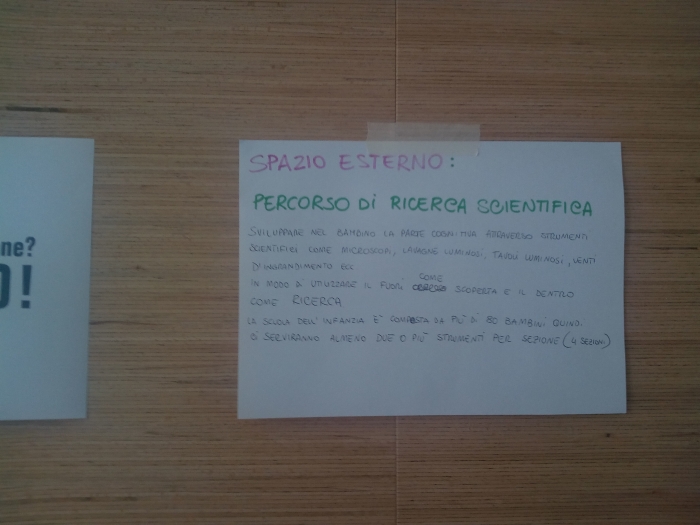 ne?
O!
SPAZIO ESTERNO:
PERCORSO Di RICERCA SCIENTIFICA
SVILUPPARE NEL BAMBINO LA PARTE COGNITIVA ATTRAVERSO STRUMENTI
SCIENTIFICI COME MICROSCOPI, LAVAGNE LUMINOSI, TAVOLI LUMINOSI, LENTI
D'INGRANDIMENTO ECC
IN MODO DI UTILIZZARE IL FUORI COME SCOPERTA E IL DENTRO
COME RICERCA
LA SCUOLA DELL'INFANZIA E' COMPOSTA DA PIÙ DI 80 BAMBINI QUINDI
CI SERVIRANNO ALMENO DUE O PIÙ STRUMENTI PER SEZIONE (4 SEZIONI)